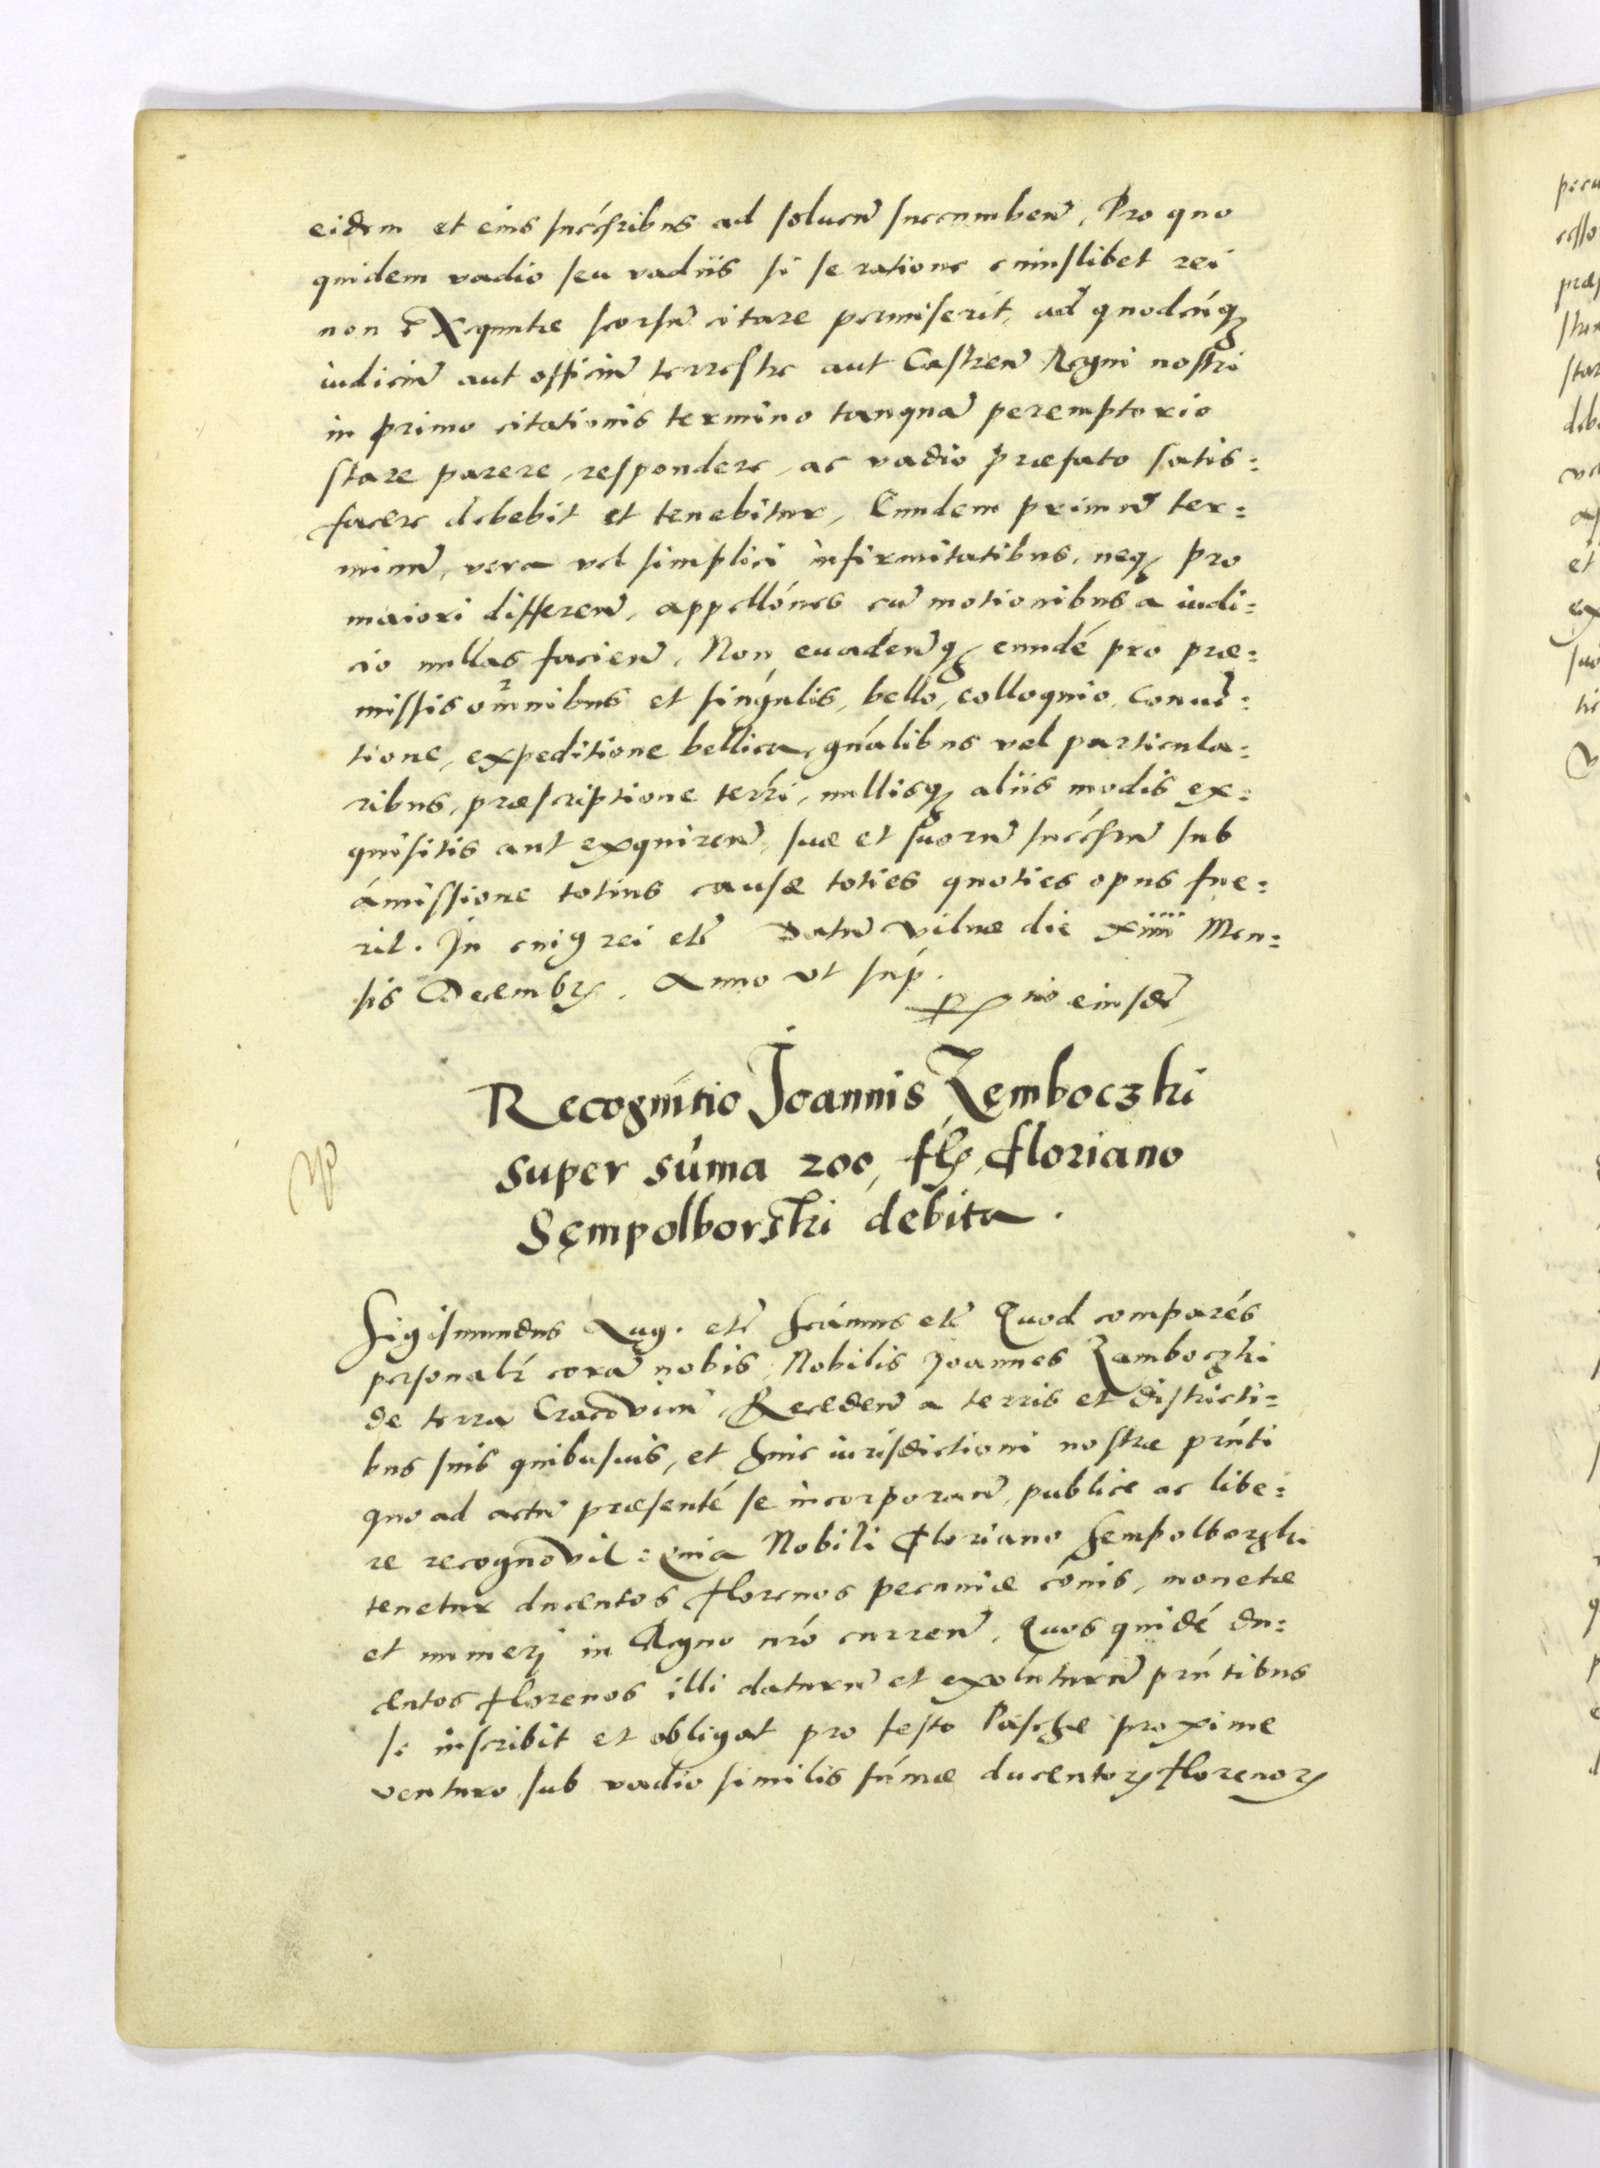 eidem et eius succēsribus ad soluen̄ succumben̄, Pro quo
quidem vadio seu vadiis si se ratione cuiuslibet rei
non exequutæ seorsū citare permiserit, ad quodcūq;
iudiciū aut officiū terrestre aut Castren̄ Regni nostri
in primo citationis termino tanquā peremptorio
stare parere, respondere, ac vadio præfato satis:
facere debebit et tenebitur, Eundem primū ter:
minū, vera vel simplici infirmitatibus, neq; pro
maiori differen̄, appellónes cū motionibus a iudi:
cio nullas facien̄, Non euaden̄q; eundé pro præ:
missis omnibus et singulis, bello, colloquio, Conué:
tione, expeditione bellica, gnálibus vel particula:
ribus, præscriptione terři, nullisq; aliis modis ex:
quisitis aut exquiren̄, suæ et suorū succēsrū sub
ámissione totius causæ toties quoties opus fue:
rit. In cuiꝰ rei etc̄ Datū Vilnæ die xiiii Men:
sis Decembr̄. Anno vt suṕ.
Recognitio Joannis Zęmboczki
super súma 200, fl̄, Floriano
Sęmpolborski debita.
Sigismundus Aug. etc̄ Scámus etc̄ Quod comparés
personalr̄ corā nobis, Nobilis Joannes Zamboczki
de terra Cracovien̄, Receden̄ a terris et districti:
bus suis quibusuis, et huic iurisdictioni nostræ prńti
quo ad actū præsenté se incorporan̄, publice ac libe:
re recognovit: Quia Nobili Floriano Sempolborzki
tenetur ducentos florenos pecuniæ cónis, monetæ
et numeri in Regno nró curren̄, Quos quidé du:
centos florenos illi daturū et exoluturū prńtibus
se inscribit et obligat pro festo Paschæ proxime
venturo sub vadio similis súmæ ducentoꝝ florenoꝝ